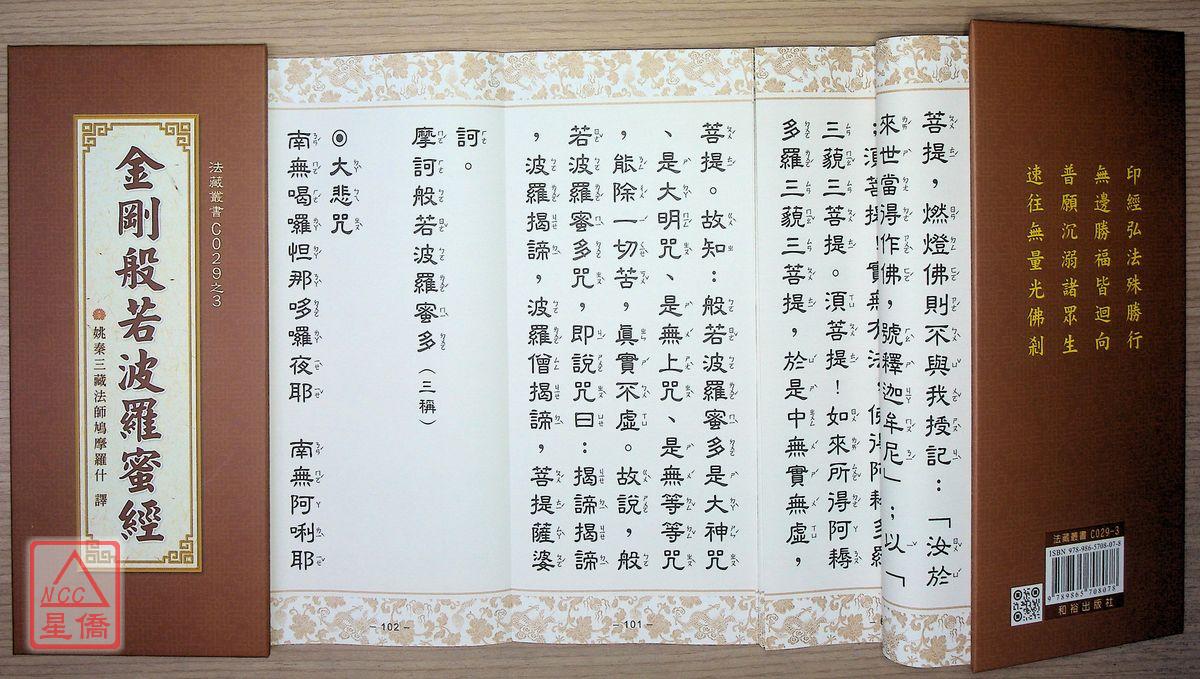 法藏叢書C029之3
金剛般若波羅蜜經
姚秦三藏法師鳩摩羅什 譯
菩提，燃燈佛則不與我授記：「汝於
來世當得作佛，號釋迦牟尼」；以「
；須菩提！實無有法，佛得阿耨多羅
三藐三菩提。須菩提！如來所得阿耨
多羅三藐三菩提，於是中無實無虛，
菩提。故知：般若波羅蜜多是大神咒
、是大明咒、是無上咒、是無等等咒
，能除一切苦，真實不虛。故說，般
若波羅蜜多咒，即說咒曰：揭諦揭諦
，波羅揭諦，波羅僧揭諦，菩提薩婆
-101-
訶。
摩訶般若波羅蜜多（三稱）
◎大悲咒
南無喝囉怛那哆囉夜耶　南無阿唎耶
-102-
印經弘法殊勝行
無邊勝福皆迴向
普願沉溺諸眾生
速往無量光佛剎
法藏叢書 C029-3
ISBN 978-986-5708-07-8
9 789865 708078
和裕出版社
NCC
星僑